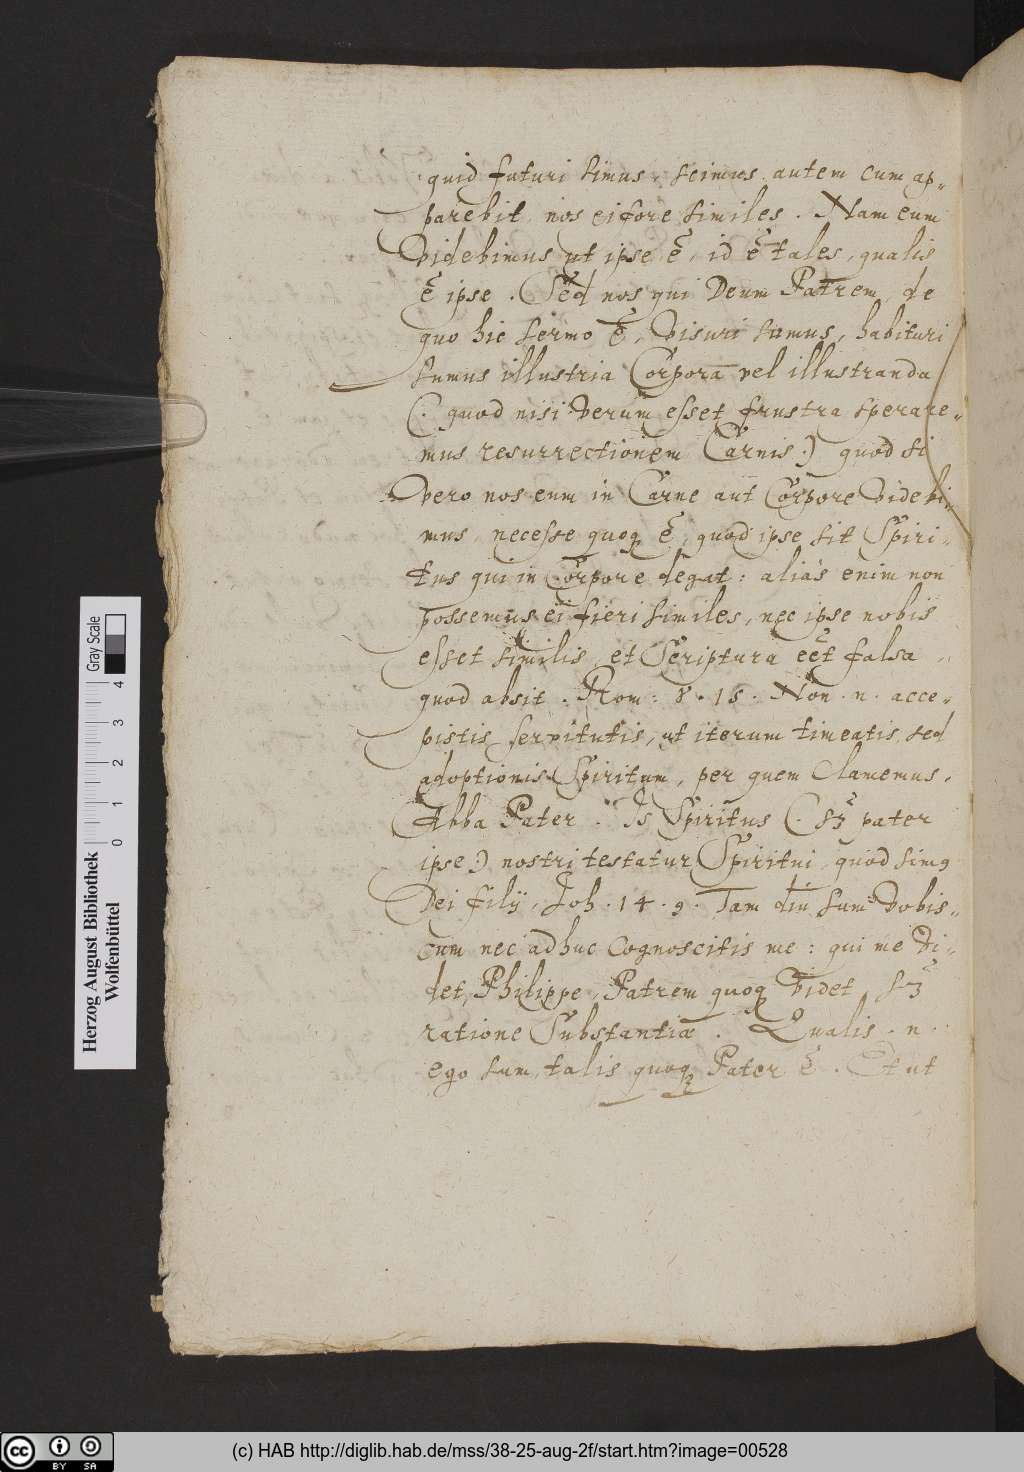 quid futuri simus, scimus autem cum ap-
parebit, nos ei fore similes. Nam eum
videbimus ut ipse ē, id ē tales, qualis
ē ipse. Sed nos qui Deum Patrem, de
quo hic sermo ē, visuri sumus, habituri
sumus illustria Corpora vel illustranda
(. quod nisi verum esset frustra sperare-
mus resurrectionem Carnis.) quod si
vero nos eum in Carne aut Corpore videbi-
mus, necesse quoq ē, quod ipse sit Spiri-
tus qui in Corpore degat: aliàs enim non
possemus ei fieri similes, nec ipse nobis
esset similis, et Scriptura eēt falsa
quod absit. Rom: 8. 15. Non. n. acce-
pistis servitutis, ut iterum timeatis, sed
adoptionis Spiritum, per quem Clamemus,
Abba Pater. Is Spiritus (. sꝫ pater
ipse.) nostri testatur Spiritui, quod simꝰ
Dei filÿ, Joh. 14. 9. Tam diu sum vobis-
cum nec adhuc cognoscitis me: qui me vi-
det, Philippe, Patrem quoq videt, sꝫ
ratione Substantiæ. Qualis. n.
ego sum, talis quoqꝫ Pater ē. Et ut
Herzog August Bibliothek
Wolfenbüttel
0 1 2 3 4
Gray Scale
cc BY SA
(c) HAB http://diglib.hab.de/mss/38-25-aug-2f/start.htm?image=00528